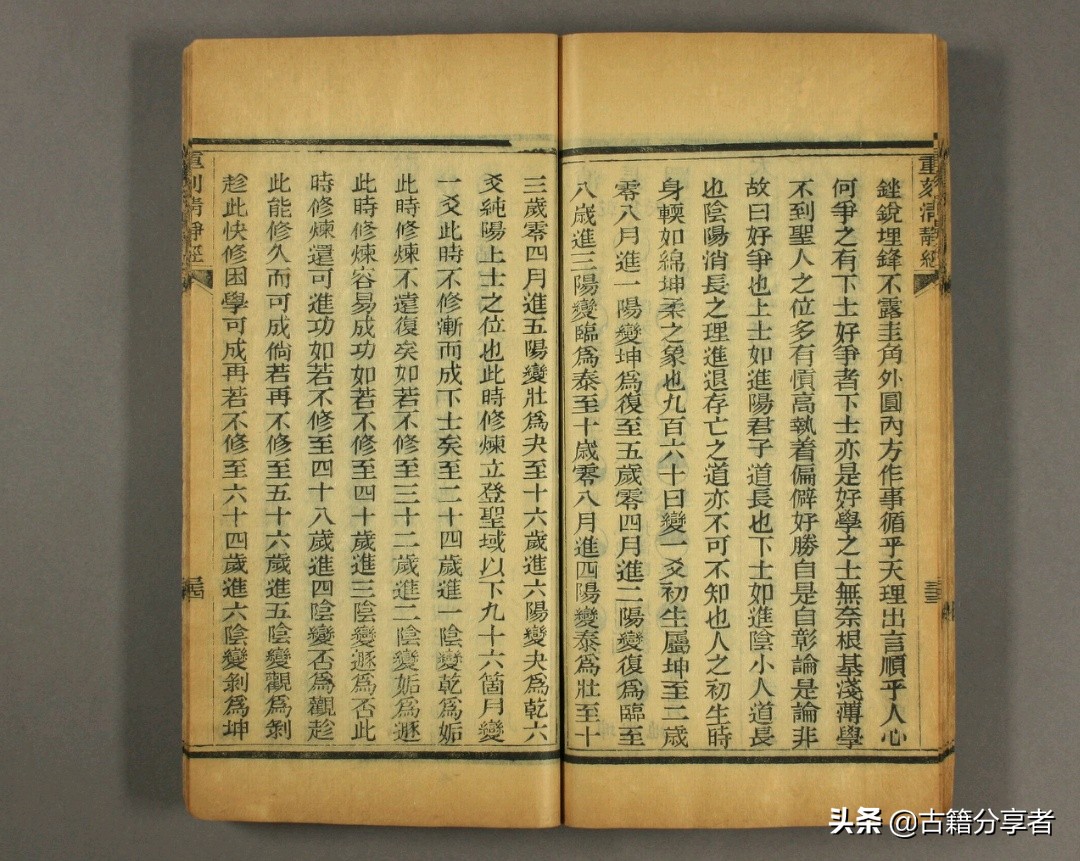 重刻清靜經
銼銳埋鋒不露圭角外圓內方作事循乎天理出言順乎人心
何爭之有下士好爭者下士亦是好學之士無奈根基淺薄學
不到聖人之位多有慎高執着偏僻好勝自是自彰論是論非
故曰好爭也上士如進陽君子道長也下士如進陰小人道長
也陰陽消長之理進退存亡之道亦不可不知也人之初生時
身輭如綿坤柔之象也九百六十日變一爻初生屬坤至二歲
零八月進一陽變坤爲復至五歲零四月進二陽變復爲臨至
八歲進三陽變臨爲泰至十歲零八月進四陽變泰爲壯至十
三歲零四月進五陽變壯爲夬至十六歲進六陽變夬爲乾六
爻純陽上士之位也此時修煉立登聖域以下九十六箇月變
一爻此時不修漸而成下士矣至二十四歲進一陰變乾爲姤
此時修煉不遠復矣如若不修至三十二歲進二陰變姤爲遯
此時修煉容易成功如若不修至四十歲進三陰變遯爲否此
時修煉還可進功如若不修至四十八歲進四陰變否爲觀趁
此能修久而可成倘若再不修至五十六歲進五陰變觀爲剝
趁此快修困學可成再若不修至六十四歲進六陰變剝爲坤
重刻清靜經
头条 @古籍分享者